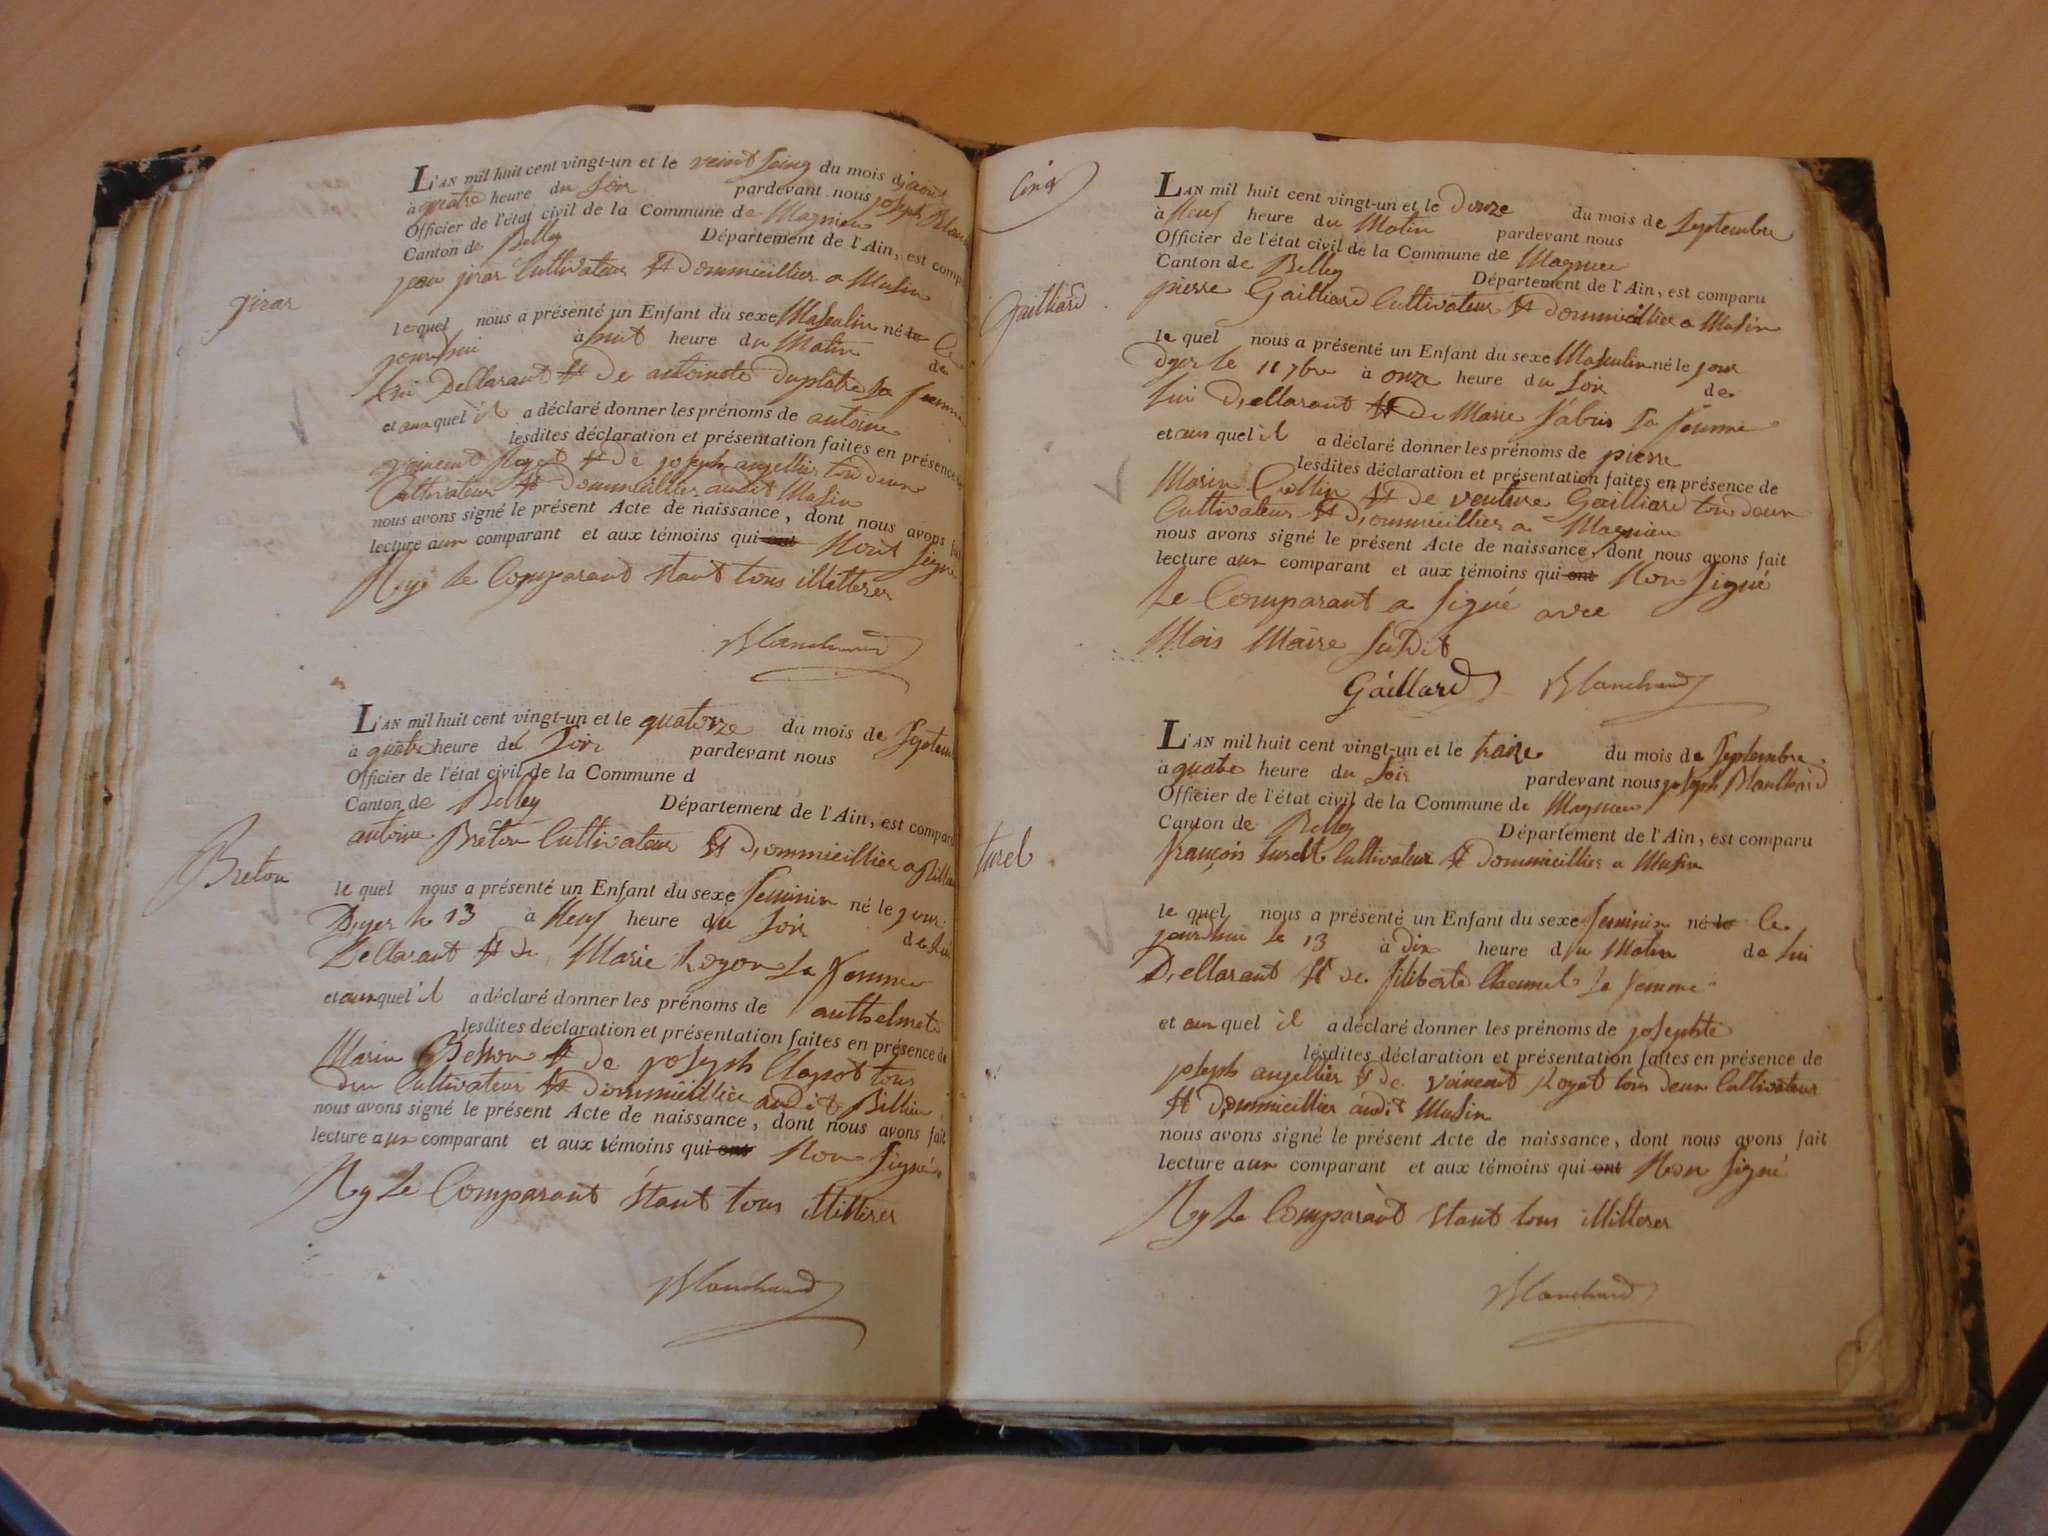 L'AN mil huit cent vingt-un et le veint sainq du mois d'aout
à quatre heure du soir pardevant nous joseph Blan
Officier de l'état civil de la Commune de Magnieu
Canton de Belley Département de l'Ain, est comp
jean jirar Cultivateur et dommieillier a Musin
jirar
le quel nous a présenté un Enfant du sexe Masculin né le Ce
jourdhui à huit heure du Matin de
lui Dellarant et de antoinete duplatre sa femme
et aux quel il a déclaré donner les prénoms de antoine
lesdites déclaration et présentation faites en présence
vaincent Royet et de joseph angellier tou deux
Cultivateur et dommieillier audit Musin
nous avons signé le présent Acte de naissance, dont nous avons fai
lecture aux comparant et aux témoins qui ont Nont signe
Ny le Comparant Etant tous illitterer
Blanchard
L'AN mil huit cent vingt-un et le quatorze du mois de septem
à quatre heure de soir pardevant nous
Officier de l'état civil de la Commune d
Canton de Belley Département de l'Ain, est compar
antoine Breton Cultivateur et Dommieillier a Billieu
Breton
le quel nous a présenté un Enfant du sexe feminin né le jour
Dyer le 13 à Neuf heure du soir de lui
Dellarant et de Marie Royon sa femme
et aux quel il a déclaré donner les prénoms de anthelmete
lesdites déclaration et présentation faites en présence de
Marin Besson et de joseph Clapot tous
deux Cultivateur et dommieillier audit Billieu
nous avons signé le présent Acte de naissance, dont nous avons fait
lecture aux comparant et aux témoins qui ont Non signé
Ny le Comparant Etant tous illitterer
Blanchard
Cinq
L'AN mil huit cent vingt-un et le douze du mois de septembre
à Neuf heure du Matin pardevant nous
Officier de l'état civil de la Commune de Magnieu
Canton de Belley Département de l'Ain, est comparu
pierre Gailliard Cultivateur et dommieillier a Musin
Gailliard
le quel nous a présenté un Enfant du sexe Masculin né le jour
dyer le 11 7bre à onze heure du soir de
lui Dellarant et de Marie sa femme
et aux quel il a déclaré donner les prénoms de pierre
lesdites déclaration et présentation faites en présence de
Marin Collin et de venture Gailliard tou deux
Cultivateur et Dommieillier a Magnieu
nous avons signé le présent Acte de naissance, dont nous avons fait
lecture aux comparant et aux témoins qui ont Non signé
Le Comparant a signé avec
Mois Maire sudit
Gaillard Blanchard
L'AN mil huit cent vingt-un et le traize du mois de septembre
à quatre heure du soir pardevant nous joseph Blanchard
Officier de l'état civil de la Commune de Magnieu
Canton de Belley Département de l'Ain, est comparu
françois turel Cultivateur et dommieillier a Musin
turel
le quel nous a présenté un Enfant du sexe feminin né le Ce
jourdhui le 13 à dix heure du Matin de lui
Dellarant et de filiberte sa femme
et aux quel il a déclaré donner les prénoms de josephte
lesdites déclaration et présentation faites en présence de
joseph angellier et de vaincent Royet tous deux Cultivateur
et Dommieillier audit Musin
nous avons signé le présent Acte de naissance, dont nous avons fait
lecture aux comparant et aux témoins qui ont Non signé
Ny le Comparant Etant tous illitterer
Blanchard